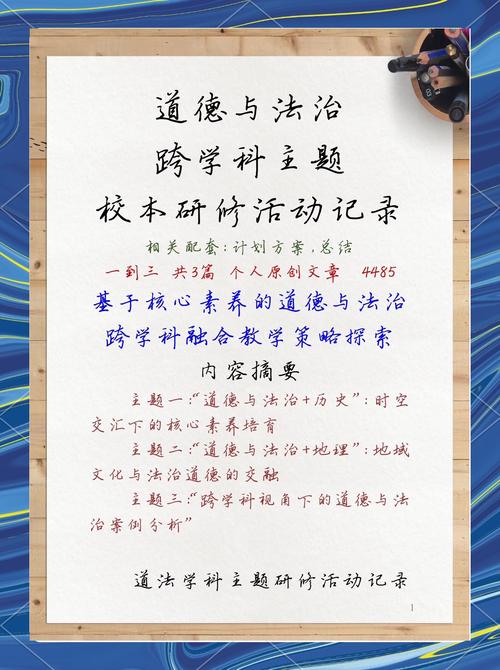 道德与法治
跨学科主题
校本研修活动记录
相关配套:计划方案,总结
一到三 共3篇 个人原创文章 4485
基于核心素养的道德与法治
跨学科融合教学策略探索
内容摘要
主题一:“道德与法治+历史”:时空
交汇下的核心素养培育
主题二:“道德与法治+地理”:地域
文化与法治道德的交融
主题三:“跨学科视角下的道德与法
治案例分析”
道法学科主题研修活动记录
1